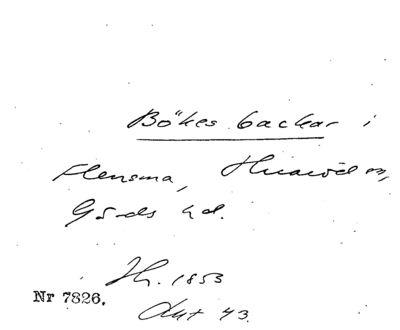 Bökes backar i
Flensma, Huaröd sn,
Gärds hd.
Hr. 1853
Nr 7826.
Akt 43.